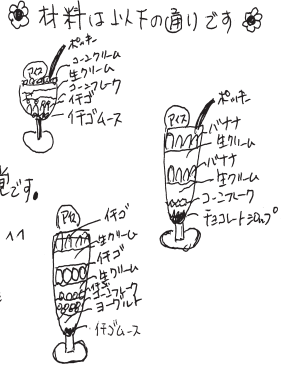 材料は以下の通りです
ポッキー
アイス
コーンフレーク
生クリーム
コーンフレーク
イチゴ
イチゴムース
ポッキー
アイス
バナナ
生クリーム
バナナ
生クリーム
コーンフレーク
チョコレートシロップ
です。
アイス
イチゴ
生クリーム
イチゴ
生クリーム
イチゴ
コーンフレーク
ヨーグルト
イチゴムース